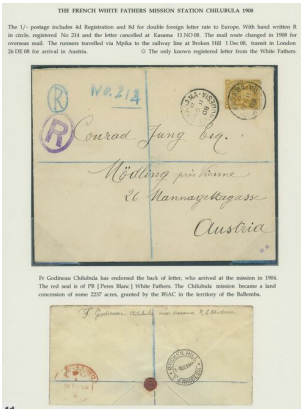 THE FRENCH WHITE FATHERS MISSION STATION CHILUBULA 1908
The 1/- postage includes 4d Registration and 8d for double foreign letter rate to Europe. With hand written R
in circle, registered No 214 and the letter cancelled at Kasama 11 NO 08. The mail route changed in 1908 for
overseas mail. The runners travelled via Mpika to the railway line at Broken Hill 1 Dec 08, transit in London
26 DE 08 for arrival in Austria. The only known registered letter from the White Fathers.
R
No. 214
R
Conrad Jung Esq.
Mödling près Vienne
26 Mannagettagasse
Austria
Fr Godineau Chilubula has endorsed the back of letter, who arrived at the mission in 1904.
The red seal is of PB [ Percy Blanc ] White Fathers. The Chilubula mission became a land
concession of some 2237 acres, granted by the BSAC in the territory of the BaBemba.
Fr Godineau Chilubula near Kasama
BROKEN HILL